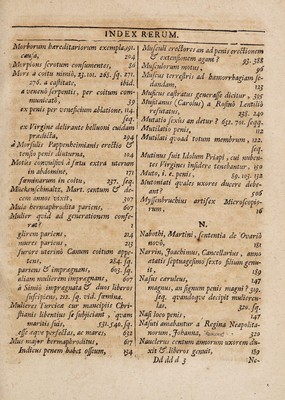 INDEX RERUM.
Morborum hereditariorum exempla, 191.
causa, 204
Morpiones scrotum consumentes, 36
Mors a coitu nimio, 23. 101. 265. sq. 271.
276. a castitate, ibid.
a venenô serpentis, per coitum com-
municatô, 39
ex penis per venefcium ablatione, 114.
seq.
ex Virgine delirante belluoni cuidam
prædicta, 294
à Morsulis Pappenheimianis erectio &
tensio penis diuturna, 104
Motio concussivi à fœtu extra uterum
in abdomine, 171
fœminarum in coitu, 237. seq.
Mückenschnaltz, Mart. centum & de-
cem annos vixit, 307
Muia hermaphrodita pariens, 616
Mulier quid ad generationem confe-
rat?
glirem pariens, 214
mures pariens, 213
furore uterinô Canum coitum appe-
tens, 254. sq.
pariens & impregnans, 603. sq.
aliam mulierem impregnans, 607
à Simiô impregnata & duos liberos
suscipiens, 212. sq. vid. fœmina.
Mulieres Turcicæ cur mancipiis Chri-
stianis libentius se subjiciant, quàm
maritis suis, 551. 540. sq.
esse æque perfectas, ac mares, 612
Mus major hermaphroditus, 617
Indicus penem habet osseum, 154
Musculi erectores an ad penis erectionem
& extensionem agant? 93. 388
Musculorum motus, 96
Muscus terrestris ad hæmorrhagiam se-
dandam, 125
Muscus castratus generasse dicitur, 315
Musitanus (Carolus) a Rosinô Lentiliô
refutatus, 238. 240
Mutatio sexûs an detur? 632. 711. seqq.
Mutilatio penis, 112
Mutilati quoad rotum membrum, 122.
seq.
Mutinus fuit Idolum Priapi, cui nuben-
tes Virgines insidere tenebantur, 190
Muto, i. e. penis, 89. 103. 132
Mutoniati quales uxores ducere debe-
ant? 506
Myssenbruchius artifex Microscopio-
rum, 16
N.
Nabothi, Martini, sententia de Ovariô
novô, 181
Narrin, Joachimus, Cancellarius, anno
ætatis septuagesimo sexto filium genu-
it, 189
Nasus cæruleus, 247
magnus, an signum penis magni? 319.
seq. quandoque decipit mulieres,
320. sq.
Nasi loco penis, 147
Nasuti amabantur a Regina Neapolita-
norum, Johanna, 320
Nauclerus centum annorum uxorem du-
xit & liberos genuit, 189
Dd dd d 3 Ne-